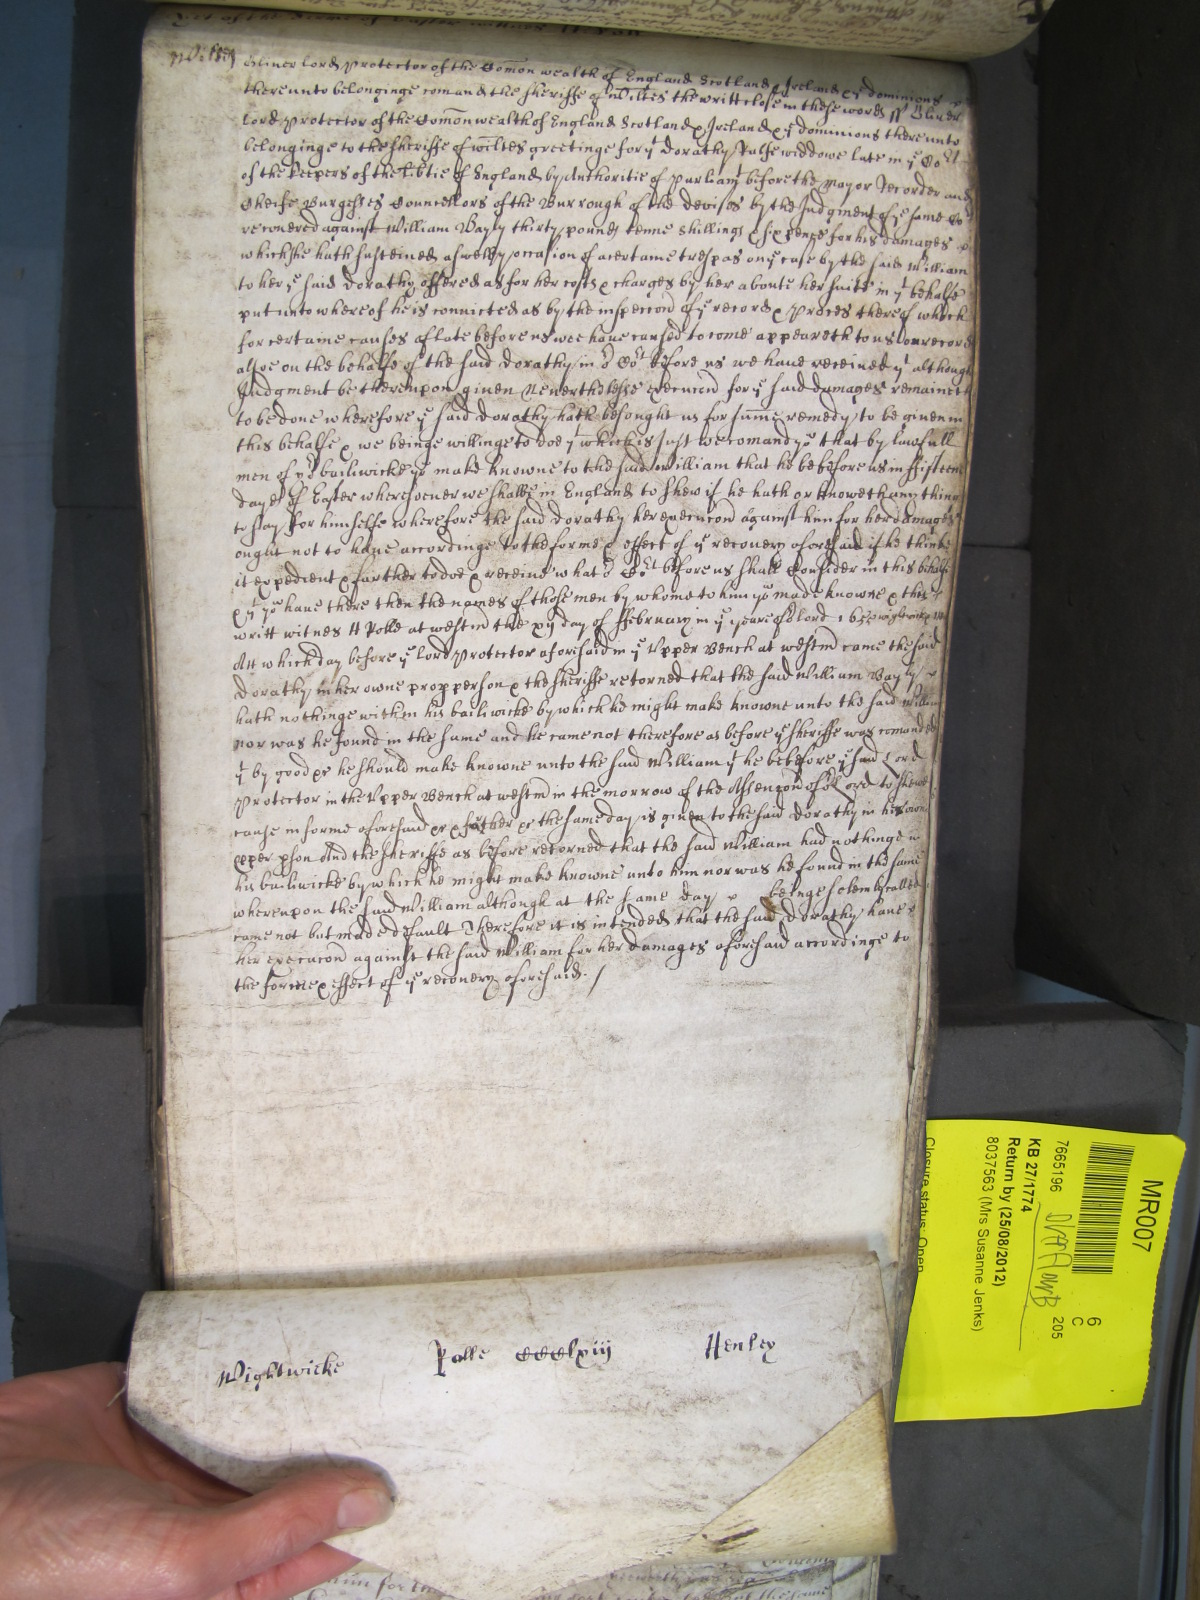 Wiltes Oliver Lord Protector of the Comon wealth of England Scotland & Ireland & ye dominions
thereunto belonginge comanded the Sheriffe of Wiltes the writt close in these words ss Oliver
Lord Protector of the Comonwealth of England Scotland & Ireland & ye dominions thereunto
belonginge to the Sheriffe of wiltes greetinge for yt Dorathy Palfe widdowe late in ye Cort
of the keepers of the libtie of England by Authoritie of parliamt before the Mayor Recorder and
Cheife Burgesses Councellors of the Burrough of the devises by the Judgment of ye same Cort
recovered against William Bayly thirty pounds tenne shillings & sixpence for his damages
which she hath susteined aswell by occasion of a certaine trespas on ye case by the said William
to her ye said Dorathy offered as for her costs & charges by her aboute her suite in yt behalfe
put unto whereof he is convicted as by the inspeccon of ye record & proces thereof which
for certaine causes of late before us wee have caused to come appeareth to us on record
alsoe on the behalfe of the said Dorathy in or Cort before us we have received yt although
Judgment be thereupon given Neverthelesse execucon for ye said damages remaineth
to be done wherefore ye said Dorathy hath besought us for some remedy to be given in
this behalfe & we beinge willinge to doe yt which is Just we comand you that by lawfull
men of yor bailiwicke you make knowne to the said William that he be before us in fifteene
dayes of Easter wheresoever we shalbe in England to shew if he hath or knoweth any thing
to say for himselfe wherefore the said Dorathy her execucon against him for her damages
ought not to have accordinge to the forme & effect of ye recovery aforesaid if he thinke
it expedient & farther to doe & receive what or Cort before us shall Consider in this behalfe
& yt you have there then the names of those men by whome to him you made knowne & this
writt witnes H Rolle at westm the xij day of ffebruary in ye yeare of or lord
Att which day before ye lord Protector aforesaid in ye Upper Bench at westm came the said
Dorathy in her owne propper person & the sheriffe retorned that the said William Bayly
hath nothinge within his bailiwicke by which he might make knowne unto the said William
nor was he found in the same and he came not therefore as before ye sheriffe was comanded
yt by good &c he should make knowne unto the said William yt he be before ye said Lord
Protector in the Upper Bench at westm in the morrow of the Assencon of or Lord to shewe
cause in forme aforesaid &c & farther &c the same day is given to the said Dorathy in her owne
pper pson And the sheriffe as before retorned that the said William had nothinge in
his bailiwicke by which he might make knowne unto him nor was he found in the same
whereupon the said William although at the same day beinge solemly called
came not but made default Therefore it is intended that the said Dorathy have
her execucon against the said William for her damages aforesaid accordinge to
the forme & effect of ye recovery aforesaid. /
Wightwicke Rolle CCClxiij Henley
MR007
6
C
205
7665196
KB 27/1774
Return by (25/08/2012)
8037563 (Mrs Susanne Jenks)
Closure status: Open